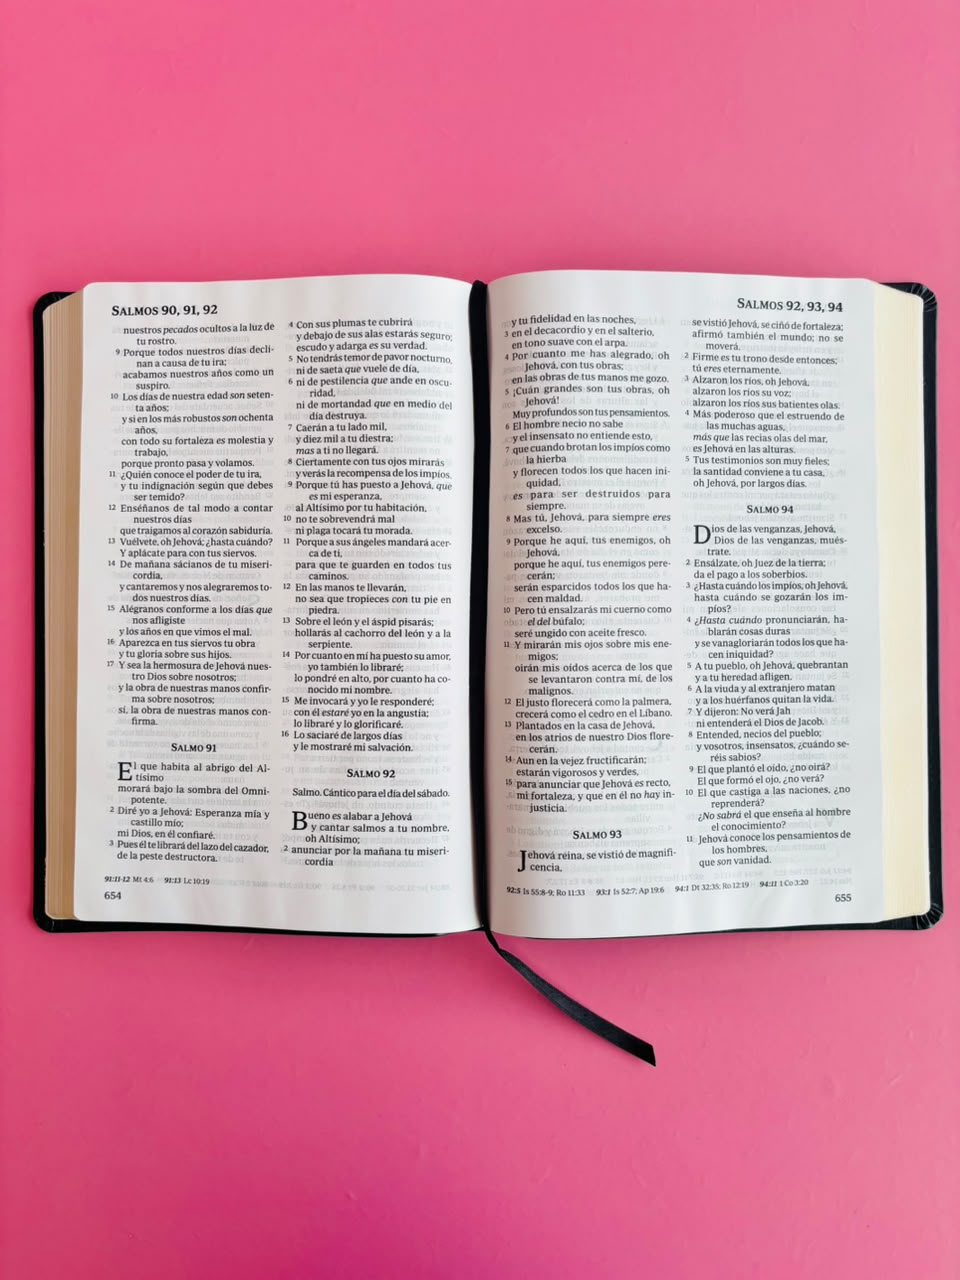 SALMOS 90, 91, 92
nuestros pecados ocultos a la luz de
tu rostro.
9 Porque todos nuestros días decli-
nan a causa de tu ira;
acabamos nuestros años como un
suspiro.
10 Los días de nuestra edad son seten-
ta años;
y si en los más robustos son ochenta
años,
con todo su fortaleza es molestia y
trabajo,
porque pronto pasa y volamos.
11 ¿Quién conoce el poder de tu ira,
y tu indignación según que debes
ser temido?
12 Enséñanos de tal modo a contar
nuestros días
que traigamos al corazón sabiduría.
13 Vuélvete, oh Jehová; ¿hasta cuándo?
Y aplácate para con tus siervos.
14 De mañana sácianos de tu miseri-
cordia,
y cantaremos y nos alegraremos to-
dos nuestros días.
15 Alégranos conforme a los días que
nos afligiste
y los años en que vimos el mal.
16 Aparezca en tus siervos tu obra
y tu gloria sobre sus hijos.
17 Y sea la hermosura de Jehová nues-
tro Dios sobre nosotros;
y la obra de nuestras manos confir-
ma sobre nosotros;
sí, la obra de nuestras manos con-
firma.
SALMO 91
El que habita al abrigo del Al-
tísimo
morará bajo la sombra del Omni-
potente.
2 Diré yo a Jehová: Esperanza mía y
castillo mío;
mi Dios, en él confiaré.
3 Pues él te librará del lazo del cazador,
de la peste destructora.
4 Con sus plumas te cubrirá
y debajo de sus alas estarás seguro;
escudo y adarga es su verdad.
5 No tendrás temor de pavor nocturno,
ni de saeta que vuele de día,
6 ni de pestilencia que ande en oscu-
ridad,
ni de mortandad que en medio del
día destruya.
7 Caerán a tu lado mil,
y diez mil a tu diestra;
mas a ti no llegará.
8 Ciertamente con tus ojos mirarás
y verás la recompensa de los impíos.
9 Porque tú has puesto a Jehová, que
es mi esperanza,
al Altísimo por tu habitación,
10 no te sobrevendrá mal
ni plaga tocará tu morada.
11 Porque a sus ángeles mandará acer-
ca de ti,
para que te guarden en todos tus
caminos.
12 En las manos te llevarán,
no sea que tropieces con tu pie en
piedra.
13 Sobre el león y el áspid pisarás;
hollarás al cachorro del león y a la
serpiente.
14 Por cuanto en mí ha puesto su amor,
yo también lo libraré;
lo pondré en alto, por cuanto ha co-
nocido mi nombre.
15 Me invocará y yo le responderé;
con él estaré yo en la angustia;
lo libraré y lo glorificaré.
16 Lo saciaré de largos días
y le mostraré mi salvación.
SALMO 92
Salmo. Cántico para el día del sábado.
Bueno es alabar a Jehová
y cantar salmos a tu nombre,
oh Altísimo;
2 anunciar por la mañana tu miseri-
cordia
91:11-12 Mt 4:6 91:13 Lc 10:19
654
SALMOS 92, 93, 94
y tu fidelidad en las noches,
3 en el decacordio y en el salterio,
en tono suave con el arpa.
4 Por cuanto me has alegrado, oh
Jehová, con tus obras;
en las obras de tus manos me gozo.
5 ¡Cuán grandes son tus obras, oh
Jehová!
Muy profundos son tus pensamientos.
6 El hombre necio no sabe
y el insensato no entiende esto,
7 que cuando brotan los impíos como
la hierba
y florecen todos los que hacen ini-
quidad,
es para ser destruidos para
siempre.
8 Mas tú, Jehová, para siempre eres
excelso.
9 Porque he aquí, tus enemigos, oh
Jehová,
porque he aquí, tus enemigos pere-
cerán;
serán esparcidos todos los que ha-
cen maldad.
10 Pero tú ensalzarás mi cuerno como
el del búfalo;
seré ungido con aceite fresco.
11 Y mirarán mis ojos sobre mis ene-
migos;
oirán mis oídos acerca de los que
se levantaron contra mí, de los
malignos.
12 El justo florecerá como la palmera,
crecerá como el cedro en el Líbano.
13 Plantados en la casa de Jehová,
en los atrios de nuestro Dios flore-
cerán.
14 Aun en la vejez fructificarán;
estarán vigorosos y verdes,
15 para anunciar que Jehová es recto,
mi fortaleza, y que en él no hay in-
justicia.
SALMO 93
Jehová reina, se vistió de magnifi-
cencia,
se vistió Jehová, se ciñó de fortaleza;
afirmó también el mundo; no se
moverá.
2 Firme es tu trono desde entonces;
tú eres eternamente.
3 Alzaron los ríos, oh Jehová,
alzaron los ríos su voz;
alzaron los ríos sus batientes olas.
4 Más poderoso que el estruendo de
las muchas aguas,
más que las recias olas del mar,
es Jehová en las alturas.
5 Tus testimonios son muy fieles;
la santidad conviene a tu casa,
oh Jehová, por largos días.
SALMO 94
Dios de las venganzas, Jehová,
Dios de las venganzas, mués-
trate.
2 Ensálzate, oh Juez de la tierra;
da el pago a los soberbios.
3 ¿Hasta cuándo los impíos, oh Jehová,
hasta cuándo se gozarán los im-
píos?
4 ¿Hasta cuándo pronunciarán, ha-
blarán cosas duras
y se vanagloriarán todos los que ha-
cen iniquidad?
5 A tu pueblo, oh Jehová, quebrantan
y a tu heredad afligen.
6 A la viuda y al extranjero matan
y a los huérfanos quitan la vida.
7 Y dijeron: No verá Jah
ni entenderá el Dios de Jacob.
8 Entended, necios del pueblo;
y vosotros, insensatos, ¿cuándo se-
réis sabios?
9 El que plantó el oído, ¿no oirá?
El que formó el ojo, ¿no verá?
10 El que castiga a las naciones, ¿no
reprenderá?
¿No sabrá el que enseña al hombre
el conocimiento?
11 Jehová conoce los pensamientos de
los hombres,
que son vanidad.
92:5 Is 55:8-9; Ro 11:33 93:1 Is 52:7; Ap 19:6 94:1 Dt 32:35; Ro 12:19 94:11 1 Co 3:20
655